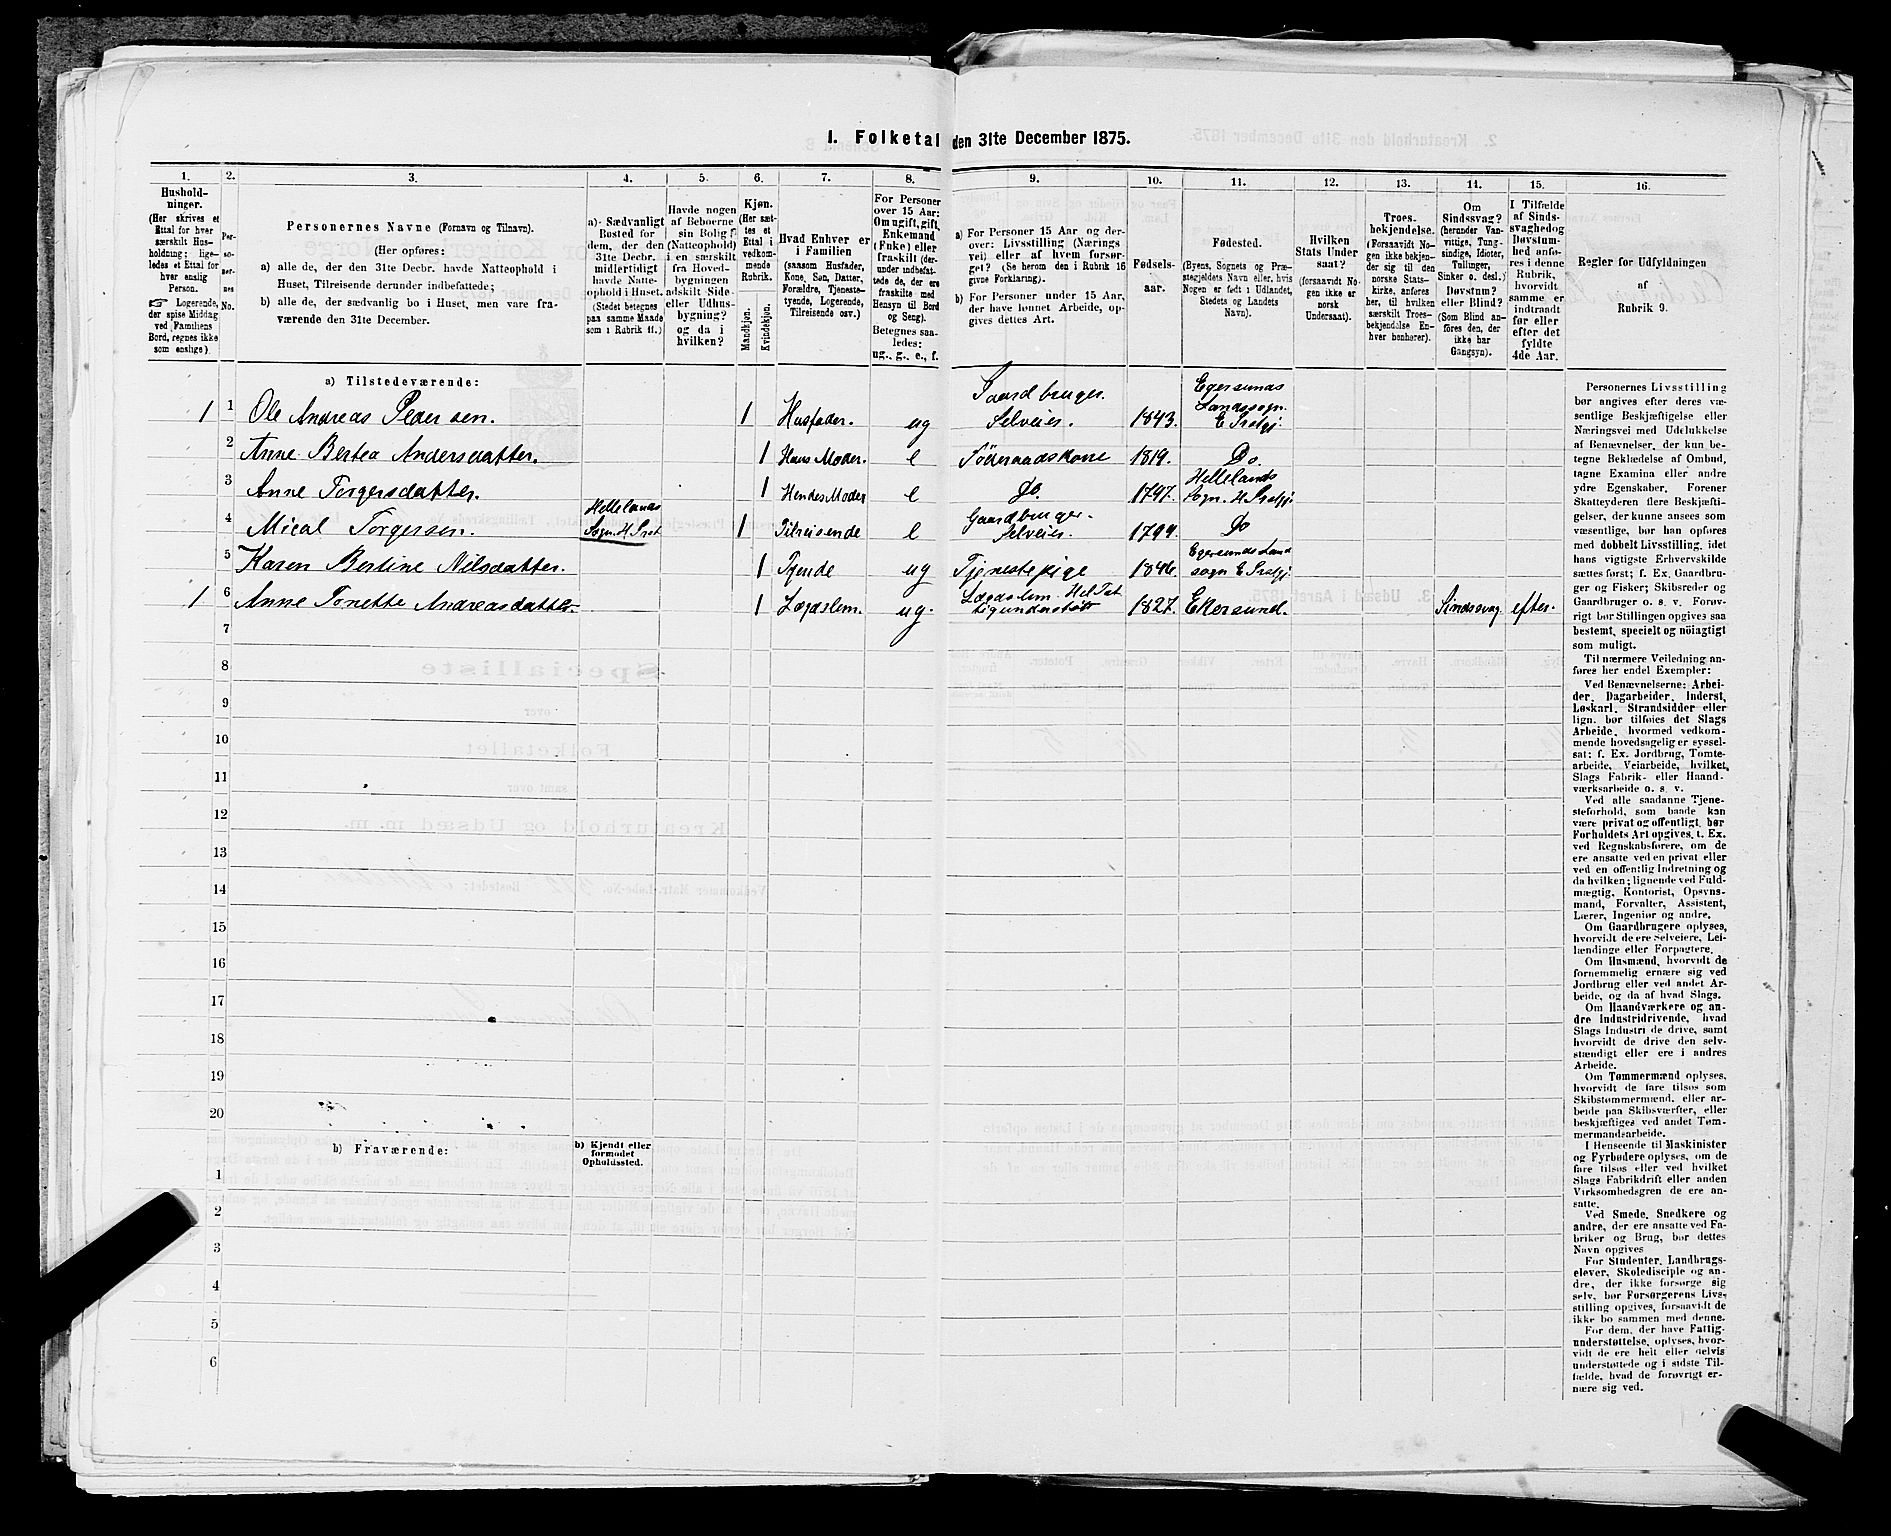 1. Folketal den 31te December 1875.
1.
Hushold-
ninger.
(Her skrives et
Ettal for hver
særskilt Hus-
holdning; lige-
ledes et Ettal for
hver enslig
Person.
☞ Logerende,
der spise Middag
ved Familiens
Bord, regnes ikke
som enslige).
2.
Per-
so-
ner-
nes
No.
3.
Personernes Navne (Fornavn og Tilnavn).
(Her opføres:
a) alle de, der den 31te Decbr. havde Natteophold i
Huset, Tilreisende derunder indbefattede;
b) alle de, der sædvanlig bo i Huset, men vare fra-
værende den 31te December.
4.
a) Sædvanligt
Bosted for
dem, der den
31te Decbr.
midlertidigt
havde Natte-
ophold i Huset.
(Stedet betegnes
paa samme Maade
som i Rubrik 11.)
5.
Havde nogen
af Beboerne
sin Bolig
(Natteophold)
i en særskilt
fra Hoved-
bygningen
adskilt Side-
eller Udhus-
bygning?
og da i
hvilken?
6.
Kjøn.
(Her sæt-
tes et
Ettal i
vedkom-
mende
Rubrik.
Mandkjøn.
Kvindekjøn.
7.
Hvad Enhver er
i Familien
(saasom Husfader,
Kone, Søn, Datter,
Forældre, Tjeneste-
tyende, Logerende,
Tilreisende osv.)
8.
For Personer
over 15 Aar:
Om ugift, gift,
Enkemand
(Enke) eller
fraskilt (der-
under indbefat-
tede de, der ere
fraskilte med
Hensyn til Bord
og Seng).
Betegnes saa-
ledes:
ug., g., e., f.
9.
a) For Personer 15 Aar og der-
over: Livsstilling (Nærings
vei) eller af hvem forsør-
get? (Se herom den i Rubrik 16
givne Forklaring).
b) For Personer under 15 Aar,
der have lønnet Arbeide, op-
gives dettes Art.
10.
Fødsels-
aar.
11.
Fødested.
(Byens, Sognets og Præ-
stegjeldets Navn eller, hvis
Nogen er født i Udlandet,
Stedets og Landets
Navn).
12.
Hvilken
Stats Under
saat?
(forsaavidt No-
gen ikke er
norsk
Undersaat).
13.
Troes-
bekjendelse.
(Forsaavidt No-
gen ikke bekjen-
der sig til den
norske Stats-
kirke, anføres
her, til hvilken
særskilt Troes-
bekjendelse En-
hver benhører).
14.
Om
Sindssvag?
(herunder Van-
vittige, Tung-
sindige, Idioter,
Tullinger,
Sinker o. desl.)
Døvstum?
eller Blind?
(Som Blind an-
føres den, der
ikke har
Gangsyn).
15.
I Tilfælde
af Sinds-
svaghed og
Døvstum-
hed anfø-
res i denne
Rubrik,
hvorvidt
samme er
indtraadt
før eller
efter det
fyldte
4de Aar.
16.
Regler for Udfyldningen
af
Rubrik 9.
a) Tilstedeværende:
1 1 Ole Andreas Pedersen. 1 Husfader. ug Gaardbruger. Selveier. 1843. Egersunds Landssogn. E Prstgj.
2 Anne Bertea Andersdatter. 1 Hans Moder. e Føderaadskone 1819. Do.
3 Anne Torgersdatter. 1 Hendes Moder e Do. 1797. Hellelands Sogn. H Prstgj.
4 Mical Torgersen. Hellelands Sogn. H Prst 1 Tilreisende e Gaardbruger. Selveier. 1799. Do
5 Karen Bertine Nilsdatter. 1 Tyende ug Tjenestepige 1846. Egersunds Land sogn E Prstgj.
1 6 Anne Tonette Andreasdatter 1 Lægdslem. ug. Lægdslem. 1827. Ekersund. Sindssvag efter.
7
8
9
10
11
12
13
14
15
16
17
18
19
20
b) Fraværende:
b) Kjendt eller
formodet
Opholdssted.
1
2
3
4
5
6
Personernes Livsstilling
bør angives efter deres væ-
sentlige Beskjæftigelse eller
Næringsvei med Udelukkelse
af Benævnelser, der kun be-
tegne Beklædelse af Ombud,
tagne Examina eller andre
ydre Egenskaber. Forener
Skatteyderen flere Beskjæfti-
gelser, der kunne ansees som
væsentlige, bør han opføres
med dobbelt Livsstilling, idet
hans vigtigste Erhvervskilde
sættes først; f. Ex. Gaardbru-
ger og Fisker; Skibsreder og
Gaardbruger o. s. v. Forøv-
rigt bør Stillingen opgives saa
bestemt, specielt og nöiagtigt
som muligt.
Til nærmere Veiledning an-
føres her endel Exempler:
Ved Benævnelserne: Arbei-
der, Dagarbeider, Inderst,
Løskarl, Strandsidder eller
lign. bør tilføies det Slags
Arbeide, hvormed vedkom-
mende hovedsagelig er syssel-
sat; f. Ex. Jordbrug, Tomte-
arbeide, Veiarbeide, hvilket
Slags Fabrik- eller Haand-
værksarbeide o. s. v.
Ved alle saadanne Tjene-
steforhold, som baade kan
være privat og offentligt, bør
Forholdets Art opgives, t. Ex.
ved Regnskabsførere, om de
ere ansatte ved en privat eller
ved en offentlig Indretning og
da hvilken; lignende ved Fuld-
mægtig, Kontorist, Opsyns-
mand, Forvalter, Assistent,
Lærer, Ingeniør og andre.
Om Gaardbrugere oplyses,
hvorvidt de ere Selveiere, Lei-
lændinge eller Forpagtere.
Om Husmænd, hvorvidt de
fornemmelig ernære sig ved
Jordbrug eller ved andet Ar-
beide, og da af hvad Slags.
Om Haandværkere og an-
dre Industridrivende, hvad
Slags Industri de drive, samt
hvorvidt de drive den selv-
stændigt eller ere i andres
Arbeide.
Om Tømmermænd oplyses,
hvorvidt de fare tilsøs som
Skibstømmermænd, eller ar-
beide paa Skibsværfter, eller
beskjæftiges ved andet Tøm-
mermandsarbeide.
I Henseende til Maskinister
og Fyrbødere oplyses, om de
fare tilsøs eller ved hvilket
Slags Fabrikdrift eller anden
Virksomhedsgren de ere an-
satte.
Ved Smede, Snedkere og
andre, der ere ansatte ved Fa-
briker og Brug, bør dettes
Navn opgives
For Studenter, Landbrugs-
elever, Skoledisciple og an-
dre, der ikke forsørge sig
selv, bør Forsørgerens Livs-
stilling opgives, forsaavidt de
ikke bo sammen med denne.
For dem, der have Fattig-
understøttelse, oplyses, hvor-
vidt de ere helt eller delvis
understøttede og i sidste Til-
fælde, hvad de forøvrigt er-
nære sig ved.